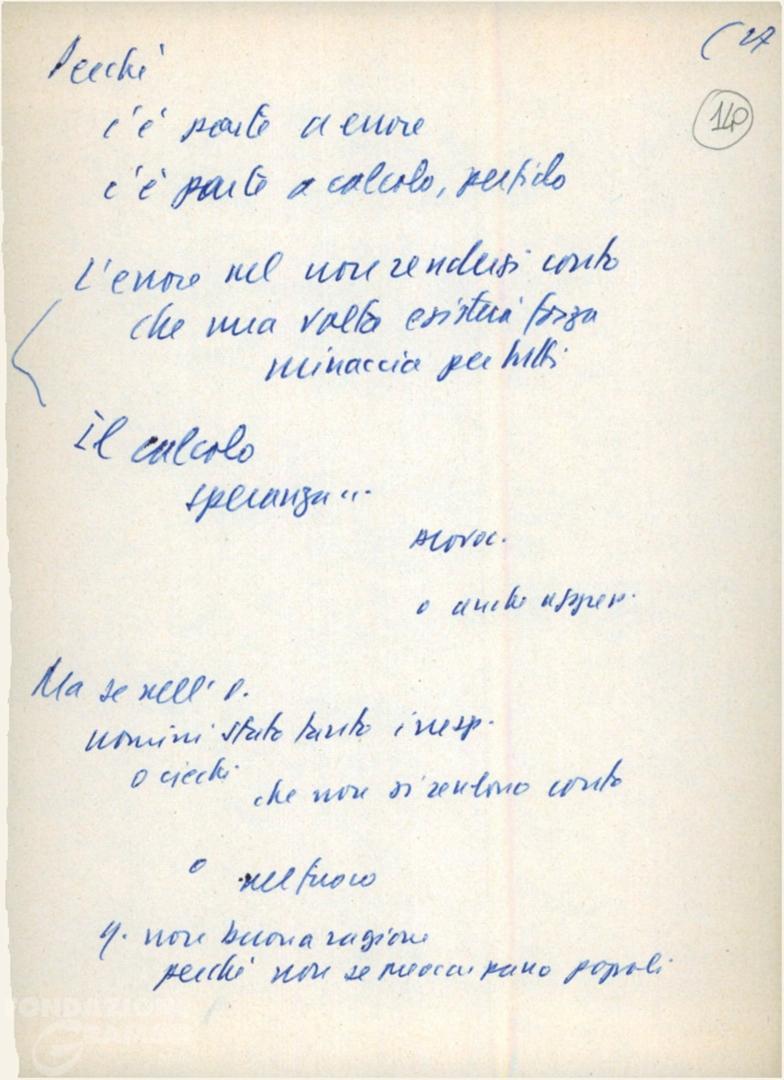 ( 27
140
Perché
c'è parte a errore
c'è parte a calcolo, perfido
L'errore nel non rendersi conto
che una volta esisterà forza
minaccia per tutti
Il calcolo
speranza...
o anche
Ma se nell'
uomini stato tanto
o ciechi
che non si rendono conto
o nel fuoco
non buona ragione
perché non se preoccupano popoli
FONDAZIONE
GRAMSCI